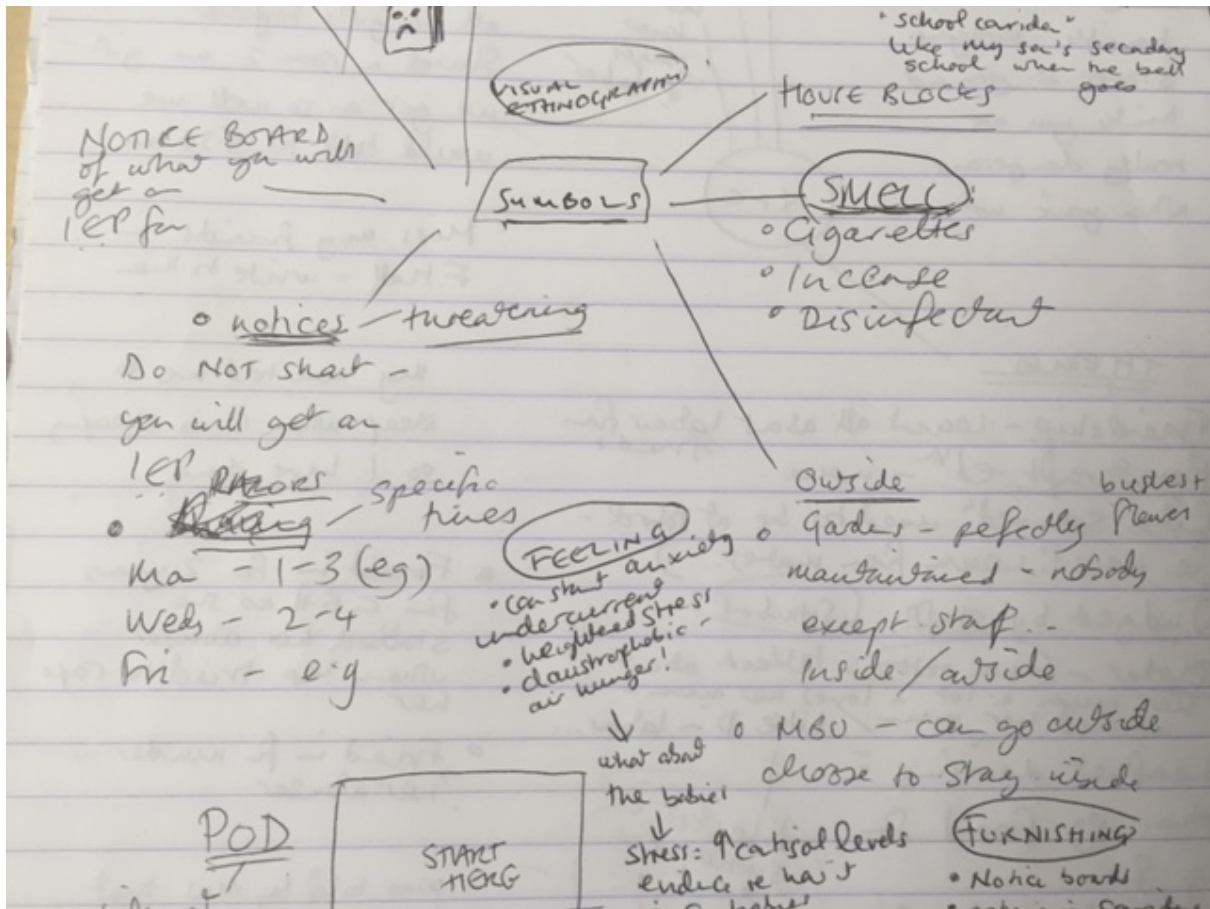 "school corridor"
like my son's secondary
school when the bell
goes
VISUAL
ETHNOGRAPHY
HOUSE BLOCKS
NOTICE BOARD
of what you will
get an
IEP for
SYMBOLS
SMELL:
• Cigarettes
• Incense
• Disinfectant
• notices - threatening
Do NOT shout -
you will get an
IEP
• RAZORS - specific
times
Mon - 1-3 (eg)
Weds - 2-4
Fri - e.g
FEELING
• constant anxiety
undercurrent
• heightened stress
• claustrophobic -
air hunger!
↓
what about
the babies
↓
stress: ↑ cortisol levels
evidence re hair
babies
Outside
• Gardens - perfectly flower
maintained - nobody
except staff...
Inside/outside
• MBU - can go outside
choose to stay inside
POD
START
HERE
FURNISHING
• Notice boards